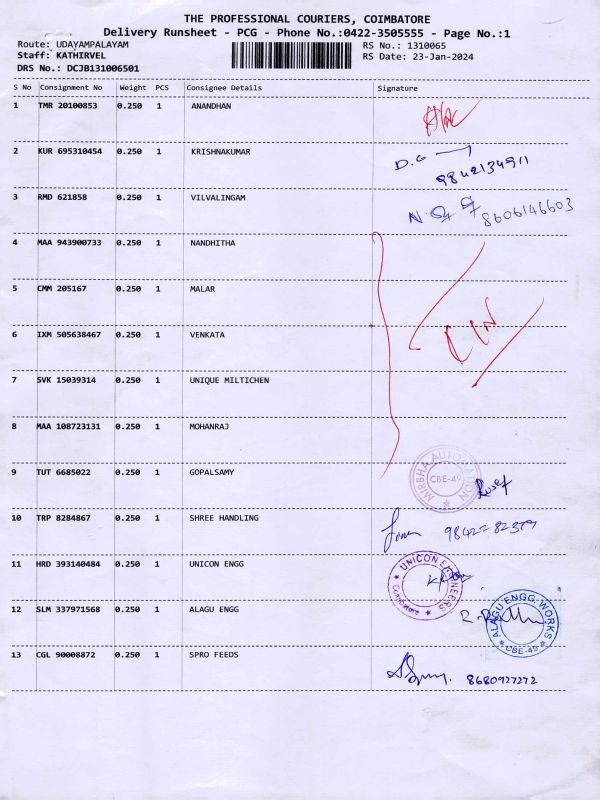 THE PROFESSIONAL COURIERS, COIMBATORE
Delivery Runsheet - PCG - Phone No.:0422-3505555 - Page No.:1
Route: UDAYAMPALAYAM
Staff: KATHIRVEL
DRS No.: DCJB131006501
RS No.: 1310065
RS Date: 23-Jan-2024
S No Consignment No Weight PCS Consignee Details Signature
1 TMR 20100853 0.250 1 ANANDHAN
2 KUR 695310454 0.250 1 KRISHNAKUMAR
9842134911
3 RMD 621858 0.250 1 VILVALINGAM
8606146603
4 MAA 943900733 0.250 1 NANDHITHA
5 CMM 205167 0.250 1 MALAR
6 IXM 505638467 0.250 1 VENKATA
7 SVK 15039314 0.250 1 UNIQUE MILTICHEN
8 MAA 108723131 0.250 1 MOHANRAJ
9 TUT 6685022 0.250 1 GOPALSAMY
MIRBHA AUTOMATION
CBE-49
10 TRP 8284867 0.250 1 SHREE HANDLING
11 HRD 393140484 0.250 1 UNICON ENGG
UNICON ENGINEERS
Coimbatore
12 SLM 337971568 0.250 1 ALAGU ENGG
ALAGU ENGG.WORKS
CBE-49
13 CGL 90008872 0.250 1 SPRO FEEDS
8680927272